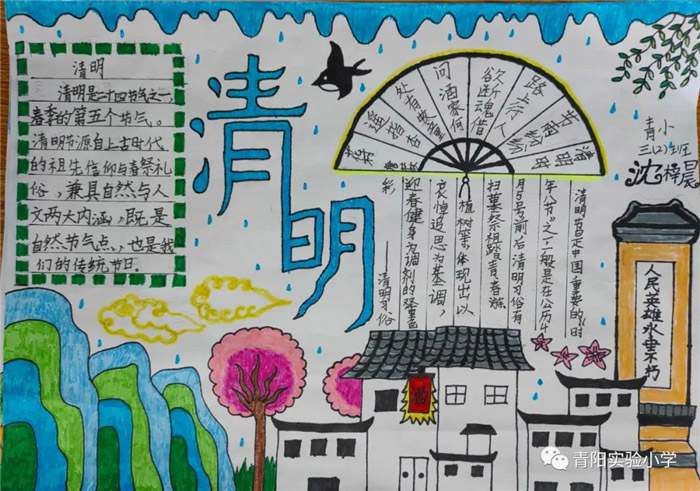 清明
清明是二十四节气之一,
春季的第五个节气。
清明节源自上古时代
的祖先信仰与春祭礼
俗,兼具自然与人
文两大内涵,既是
自然节气点,也是我
们的传统节日。
清明
清明时节雨
路上行人
欲断魂借
问酒家何
处有牧童
遥指杏
青小
三(2)班
沈梓晨
清明节是中国重要的“时
年八节”之一,一般是在公历4
月5号前后清明习俗有
扫墓祭祖踏青春游
植树菜,体现出以
哀悼追思为基调,
迎春健身为调剂的
彩
——清明习俗
酒
人民英雄永垂不朽
青阳实验小学